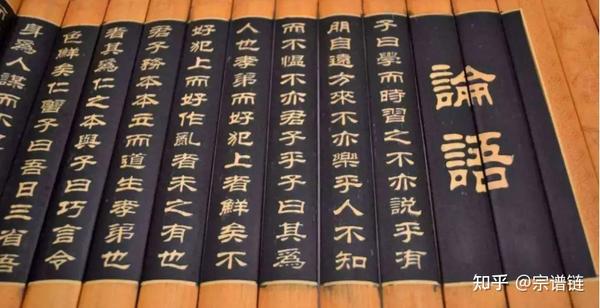 論語
子曰學而時習之不亦說乎有
朋自遠方來不亦樂乎人不知
而不慍不亦君子乎子曰其為
人也孝弟而好犯上者鮮矣不
好犯上而好作亂者未之有也
君子務本本立而道生孝弟也
者其為仁之本與子曰巧言令
色鮮矣仁曾子曰吾日三省吾
身為人謀而不
知乎 @宗谱链